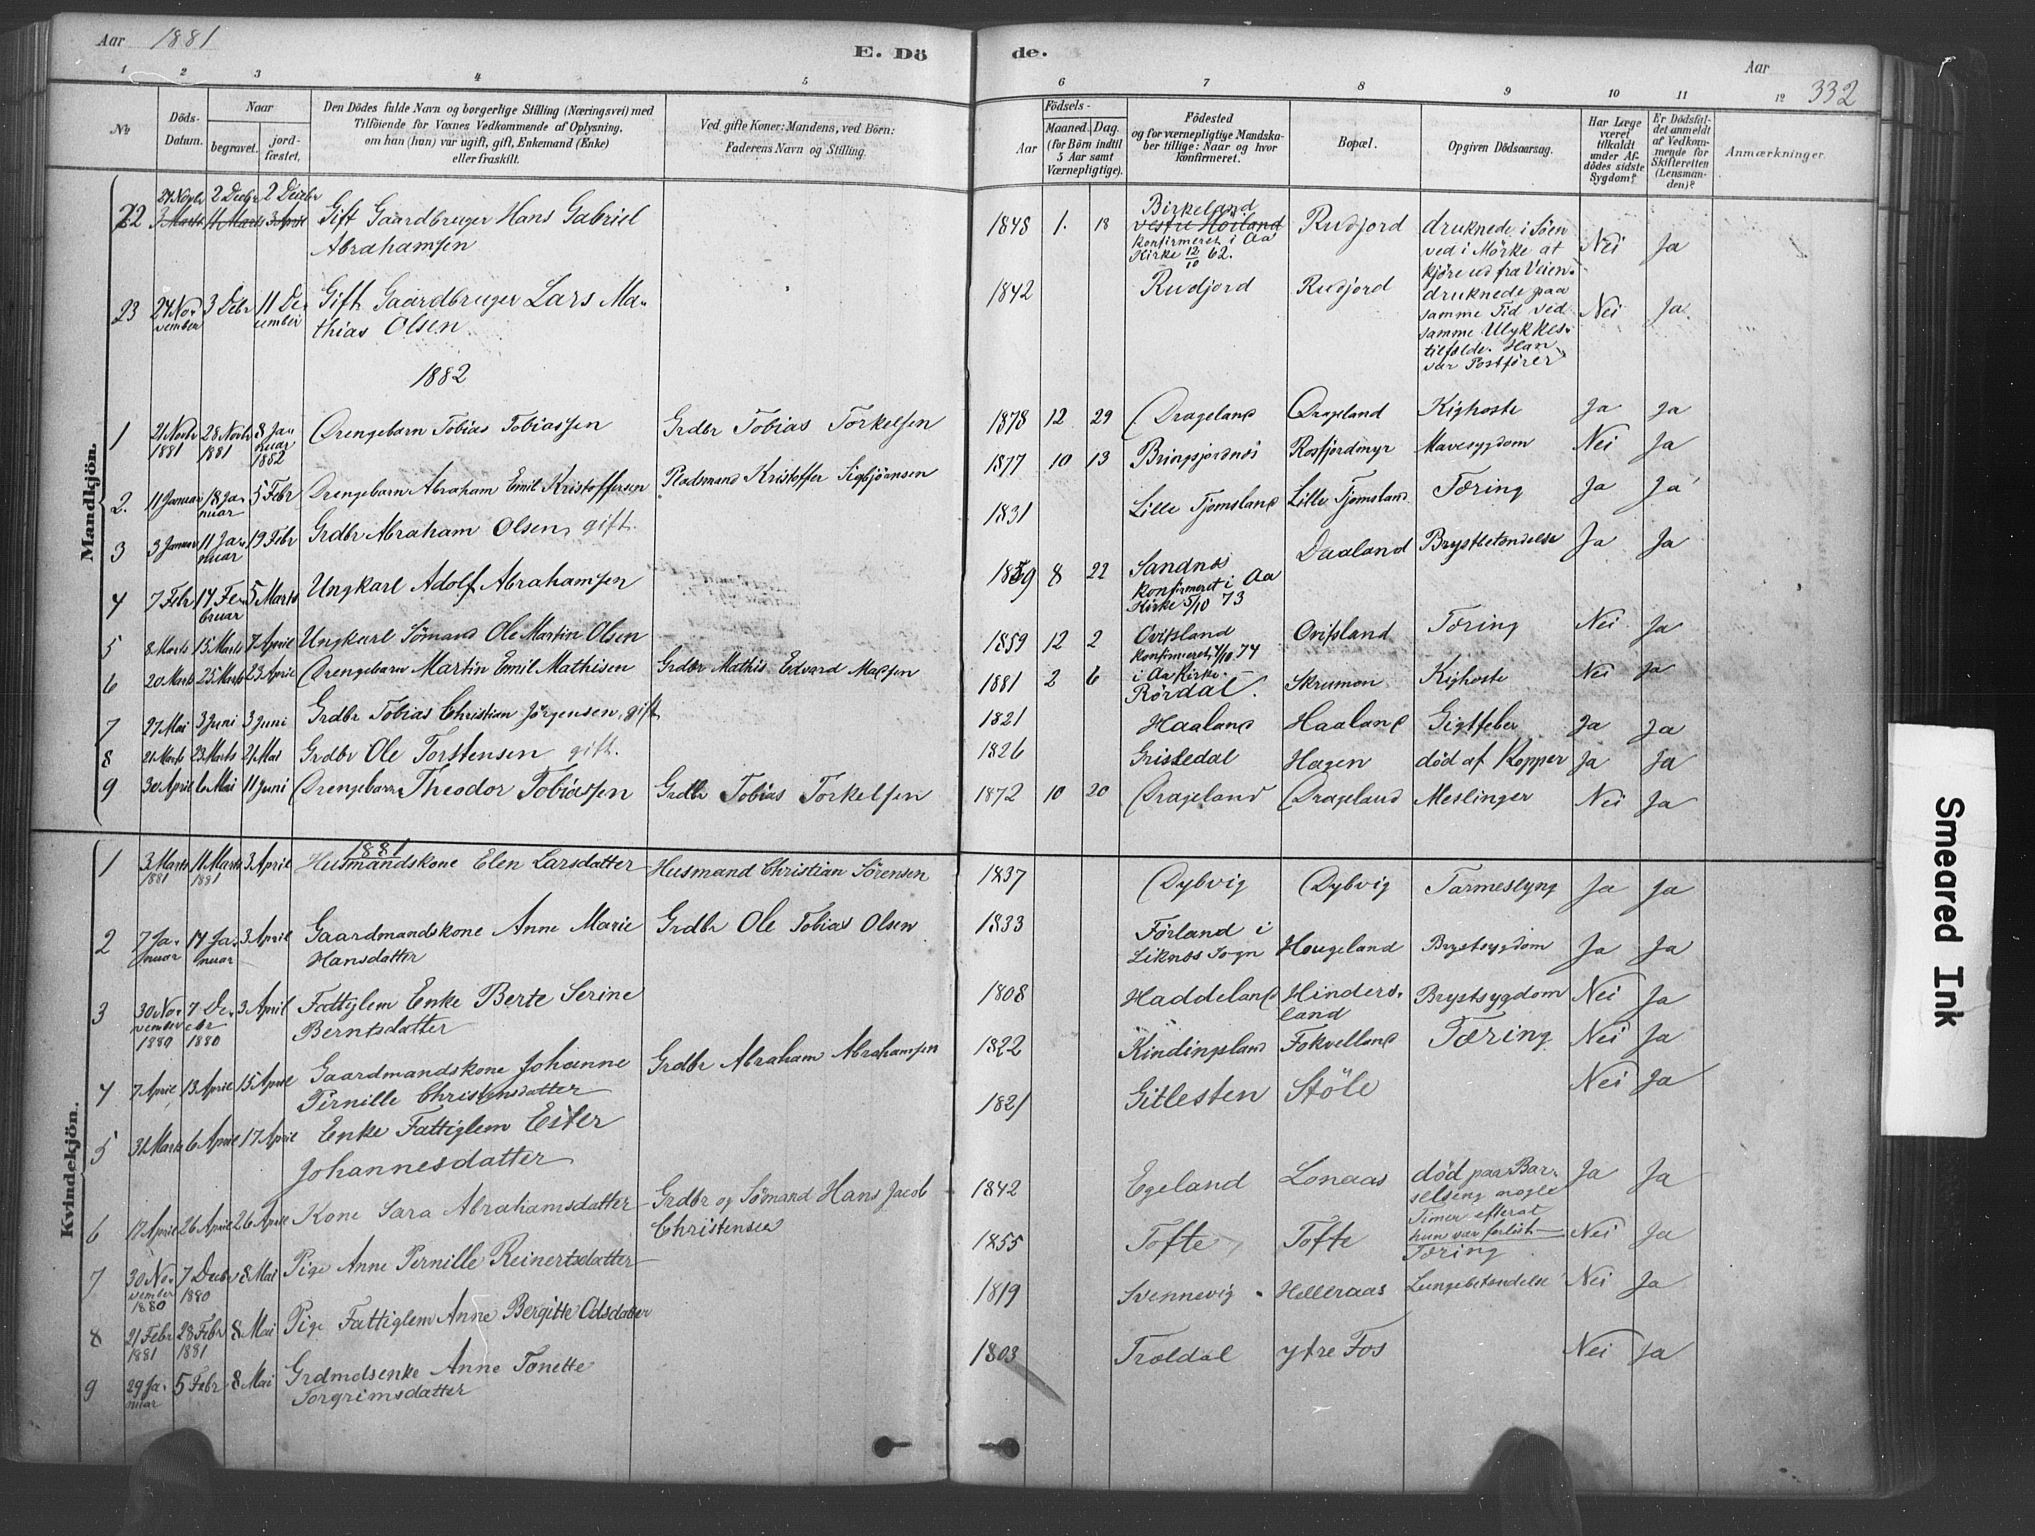 Aar 1881
E. Döde.
Aar
332
1 2 3 4 5 6 7 8 9 10 11 12
No
Döds-Datum.
Naar
begravet.
jord-fæstet.
Den Dödes fulde Navn og borgerlige Stilling (Næringsvei) med
Tilföiende for Voxnes Vedkommende af Oplysning,
om han (hun) var ugift, gift, Enkemand (Enke)
eller fraskilt.
Ved gifte Koner: Mandens, ved Börn:
Faderens Navn og Stilling.
Födsels-
Aar
Maaned. Dag.
(for Börn indtil
5 Aar samt
Værnepligtige).
Födested
og for værnepligtige Mandska-
ber tillige: Naar og hvor
konfirmeret.
Bopæl.
Opgiven Dödsaarsag.
Har Læge
været
tilkaldt
under Af-
dödes sidste
Sygdom?
Er Dödsfal-
det anmeldt
af Vedkom-
mende for
Skifteretten
(Lensman-
den)?
Anmærkninger.
Mandkjön.
22 27 Novbr 2 Decbr 2 Decbr
3 Marts 11 Marts 3 April
Gift Gaardbruger Hans Gabriel
Abrahamsen
1848 1. 18
Birkeland
Vestre Hörland
Konfirmeret i Aa
Kirke 12/10 62.
Rudjord
druknede i Söen
ved i Mörke at
kjöre ud fra Veien.
Nei Ja
23 27 November 3 Debr 11 December
Gift Gaardbruger Lars Ma-
thias Olsen
1842 Rudjord Rudjord
druknede paa
samme Tid ved
samme Ulykkes-
tilfælde. Han
var Postförer
Nei Ja
1882
1 21 Novbr 1881 28 Novbr 1881 8 Januar 1882 Drengebarn Tobias Tobiassen Grdbr Tobias Torkelsen 1878 12 29 Drageland Drageland Kighoste Ja Ja
2. 11 Januar 18 Januar 5 Febr Drengebarn Abraham Emil Kristoffersen Pladsmand Kristoffer Sigbjörnsen 1877 10 13 Bringsjordnes Rosfjordmyr Mavesygdom Nei Ja
3 3 Januar 11 Januar 19 Febr Grdbr Abraham Olsen, gift. 1831 Lille Tjomsland Lille Tjomsland Tæring Ja Ja
4 7 Febr 14 Februar 5 Marts Ungkarl Adolf Abrahamsen 1859 8 22 Sandnes
Konfirmeret i Aa
Kirke 5/10 73
Daaland Brystbetændelse Ja Ja
5 8 Marts 15 Marts 7 April Ungkarl Sömand Ole Martin Olsen 1859 12 2 Qvisland
Konfirmeret 4/10 74
i Aa Kirke.
Qvisland Tæring Nei Ja
6 20 Marts 25 Marts 23 April Drengebarn Martin Emil Mathisen Grdbr Mathis Edvard Madsen 1881 2 6 Rördal. Skrumon Kighoste Nei Ja
7 27 Mai 3 Juni 3 Juni Grdbr Tobias Christian Jörgensen, gift 1821 Haaland Haaland Gigtfeber Ja Ja
8 21 Marts 23 Marts 21 Mai Grdbr Ole Torstensen gift. 1826 Gristedal Hagen död af Kopper Ja Ja
9 30 April 6 Mai 11 Juni Drengebarn Theodor Tobiassen Grdbr Tobias Torkelsen 1872 10 20 Drageland Drageland Meslinger Nei Ja
Kvindekjön.
1881
1 3 Marts 1881 11 Marts 1881 3 April Husmandskone Elen Larsdatter Husmand Christian Sörensen 1837 Dybvig Dybvig Tarmeslyng Ja Ja
2 7 Januar 14 Januar 3 April Gaardmandskone Anne Marie
Hansdatter
Grdbr Ole Tobias Olsen 1833 Förland i
Liknes Sogn
Hougeland Brystsygdom Ja Ja
3 30 November 1880 7 Decbr 1880 3 April Fattiglem Enke Berte Serine
Berntsdatter
1808 Haddeland Hindersland Brystsygdom Nei Ja
4 7 April 13 April 15 April Gaardmandskone Johanne
Pernille Christensdatter
Grdbr Abraham Abrahamsen 1822 Kindingsland Fokvelland Tæring Nei Ja
5 31 Marts 6 April 17 April Enke Fattiglem Ester
Johannesdatter
1821 Gitlesten Stöle Nei Ja
6 12 April 26 April 26 April Kone Sara Abrahamsdatter Grdbr og Sömand Hans Jacob
Christensen
1842 Egeland Lonaas död paa Bar-
selseng nogle
Timer efterat
hun var forlöst
Ja Ja
7 30 November 1880 7 Decbr 1880 8 Mai Pige Anne Pernille Reinertsdatter 1855 Tofte Tofte Tæring Nei Ja
8 21 Febr 1881 28 Febr 1881 8 Mai Pige Fattiglem Anne Bergitte Odsdatter 1819 Svennevig Helleraas Lungebetændelse Nei Ja
9 29 Januar 5 Febr 8 Mai Grdmdsenke Anne Tonette
Torgrimsdatter
1803 Trældal ytre Fos Nei Ja
Smeared Ink